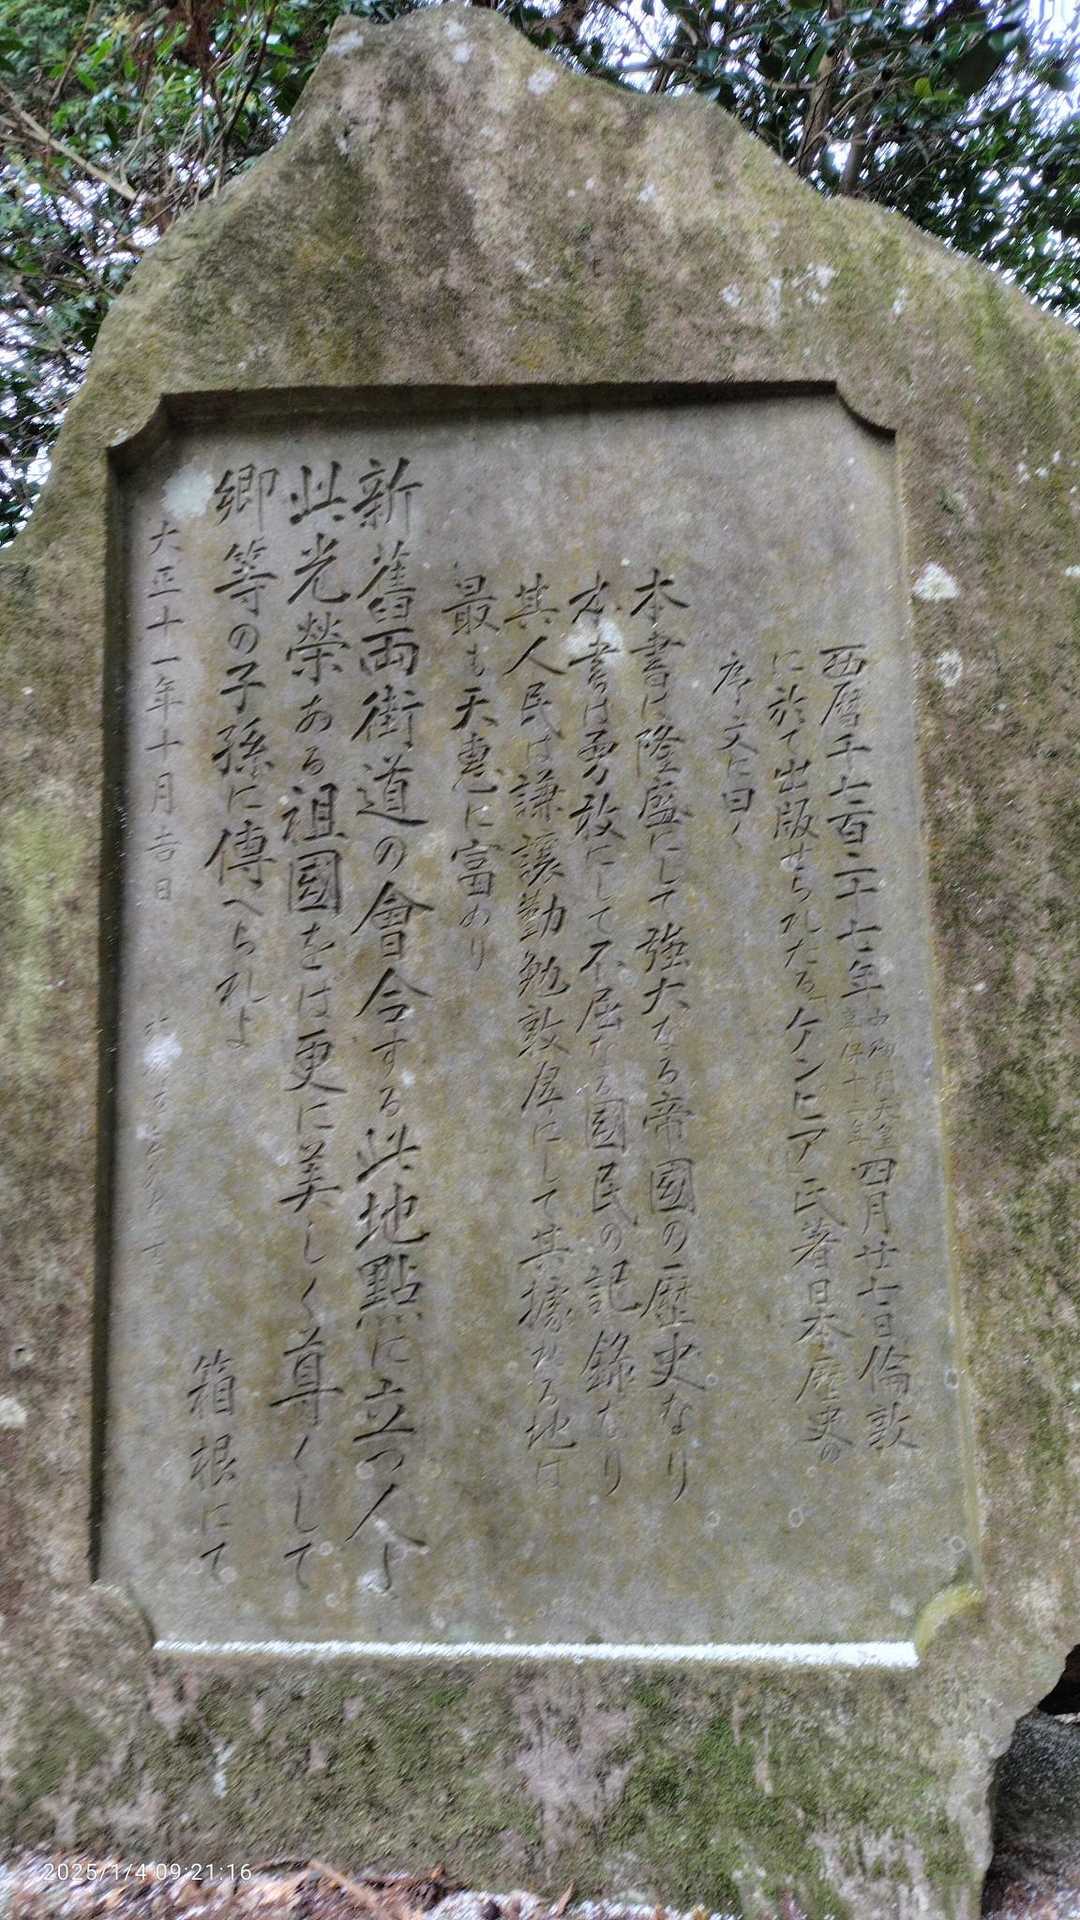 西暦千七百二十七年中御門天皇享保十二年四月廿七日倫敦
に於て出版せられたるケンピア氏著日本歴史の
序文に曰く
本書は隆盛にして強大なる帝國の歴史なり
本書は勇敢にして不屈なる國民の記録なり
其人民は謙譲勤勉敦厚にして其據れる地は
最も天恵に富めり
新舊両街道の會合する此地點に立つ人よ
此光榮ある祖國をば更に美しく尊くして
卿等の子孫に傳へられよ
箱根にて
大正十一年十月吉日
2025/1/4 09:21:16